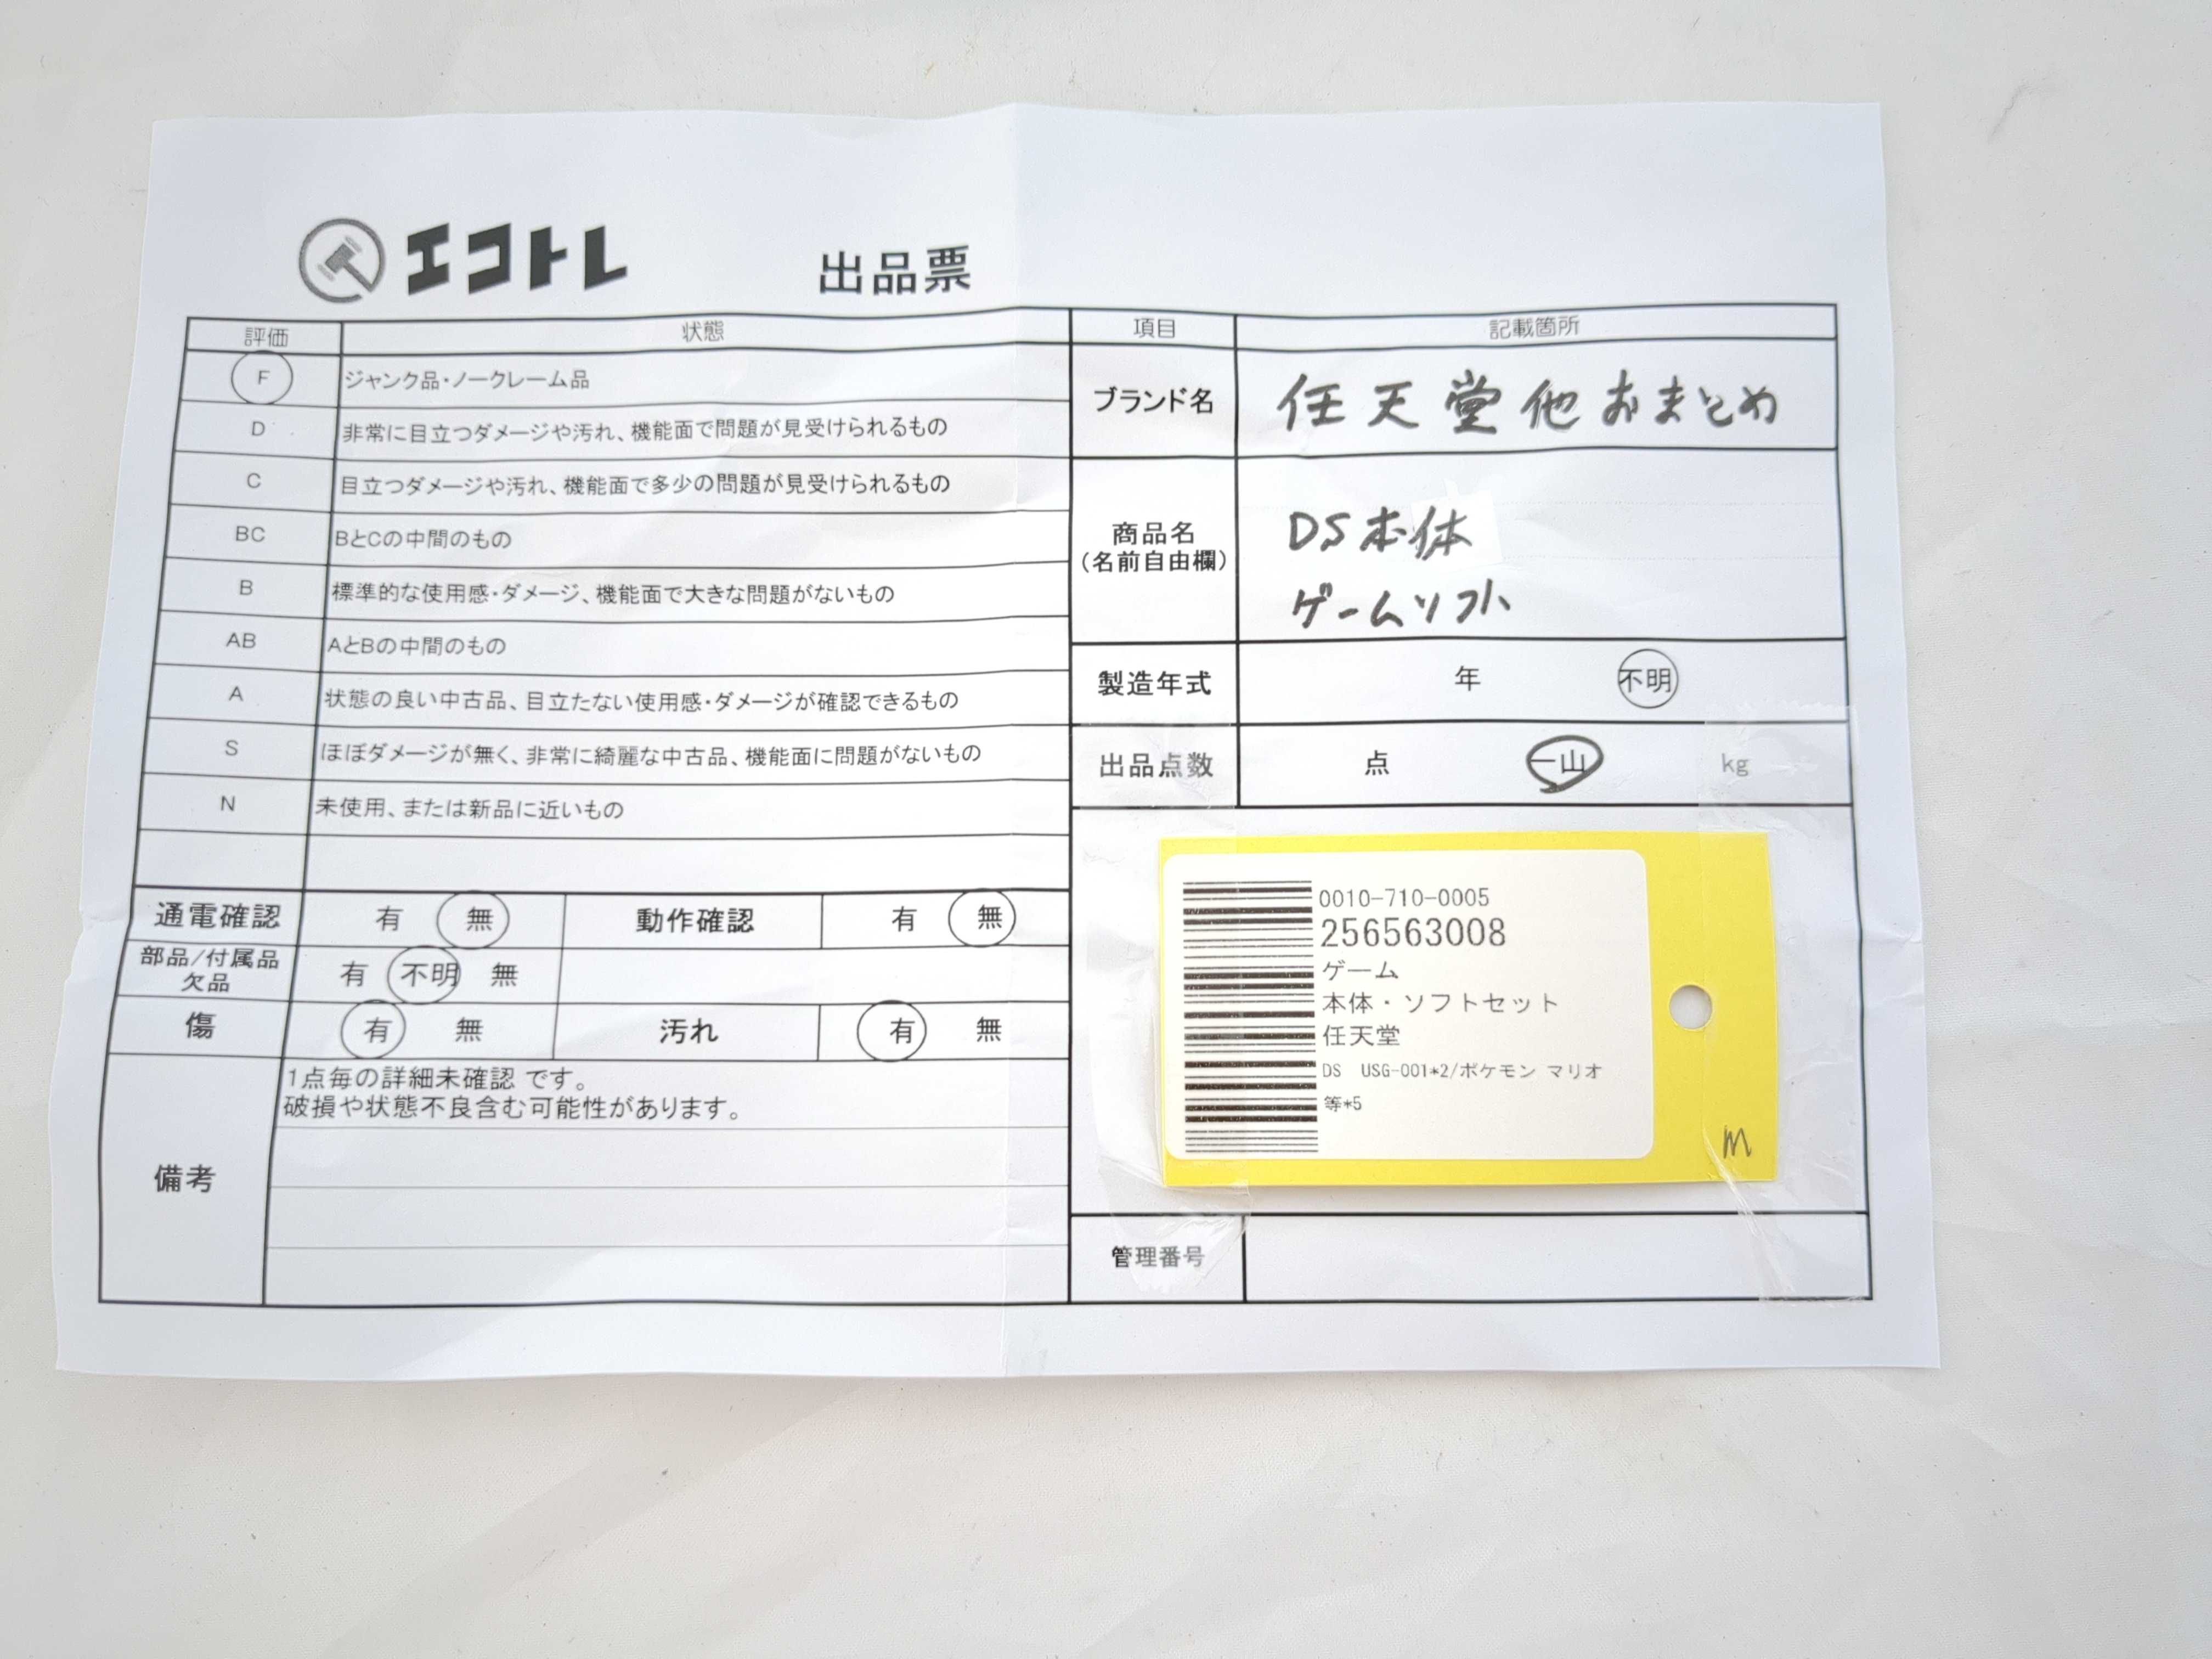 エコトレ
出品票
評価 状態
F ジャンク品・ノークレーム品
D 非常に目立つダメージや汚れ、機能面で問題が見受けられるもの
C 目立つダメージや汚れ、機能面で多少の問題が見受けられるもの
BC BとCの中間のもの
B 標準的な使用感・ダメージ、機能面で大きな問題がないもの
AB AとBの中間のもの
A 状態の良い中古品、目立たない使用感・ダメージが確認できるもの
S ほぼダメージが無く、非常に綺麗な中古品、機能面に問題がないもの
N 未使用、または新品に近いもの
通電確認 有 無 動作確認 有 無
部品/付属品
欠品 有 不明 無
傷 有 無 汚れ 有 無
備考
1点毎の詳細未確認 です。
破損や状態不良含む可能性があります。
項目 記載箇所
ブランド名 任天堂他おまとめ
商品名
(名前自由欄)
DS本体
ゲームソフト
製造年式 年 不明
出品点数 点 一山 kg
0010-710-0005
256563008
ゲーム
本体・ソフトセット
任天堂
DS USG-001*2/ポケモン マリオ
等*5
m
管理番号